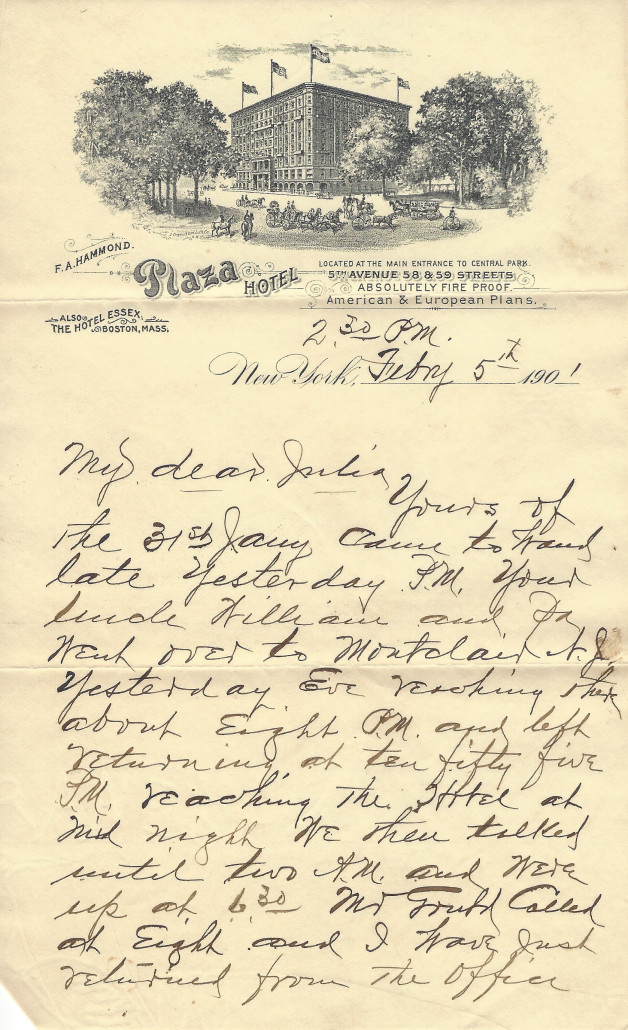 F. A. HAMMOND.
Plaza HOTEL
LOCATED AT THE MAIN ENTRANCE TO CENTRAL PARK.
5TH AVENUE 58 & 59 STREETS
ABSOLUTELY FIRE PROOF.
American & European Plans.
ALSO
THE HOTEL ESSEX,
BOSTON, MASS.
2.30 P.M.
New York, Febry 5th 1901
My dear Julia
Yours of
the 31st Jany came to hand
late Yesterday P.M. Your
Uncle William and
Went over to Montclair N.J.
Yesterday Eve reaching there
about Eight P.M. and left
returning at ten fifty five
P.M. reaching the Hotel at
Mid night We then talked
until two A.M. and Were
up at 6.30 Mr Called
at Eight and I have just
returned from the Office